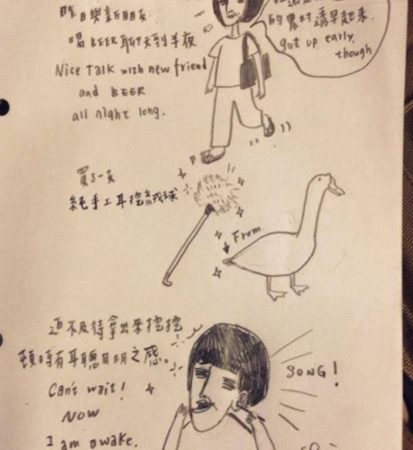 昨日與新朋友
喝BEER聊天到半夜
Nice Talk with new friend
and BEER
all night long.
的農村還早起來.
got up early,
though
買了一支
純手工耳挖絨球
From
迫不及待拿出來挖挖
頓時有耳聰目明之感.
Can't wait!
NOW
I am awake.
SONG!